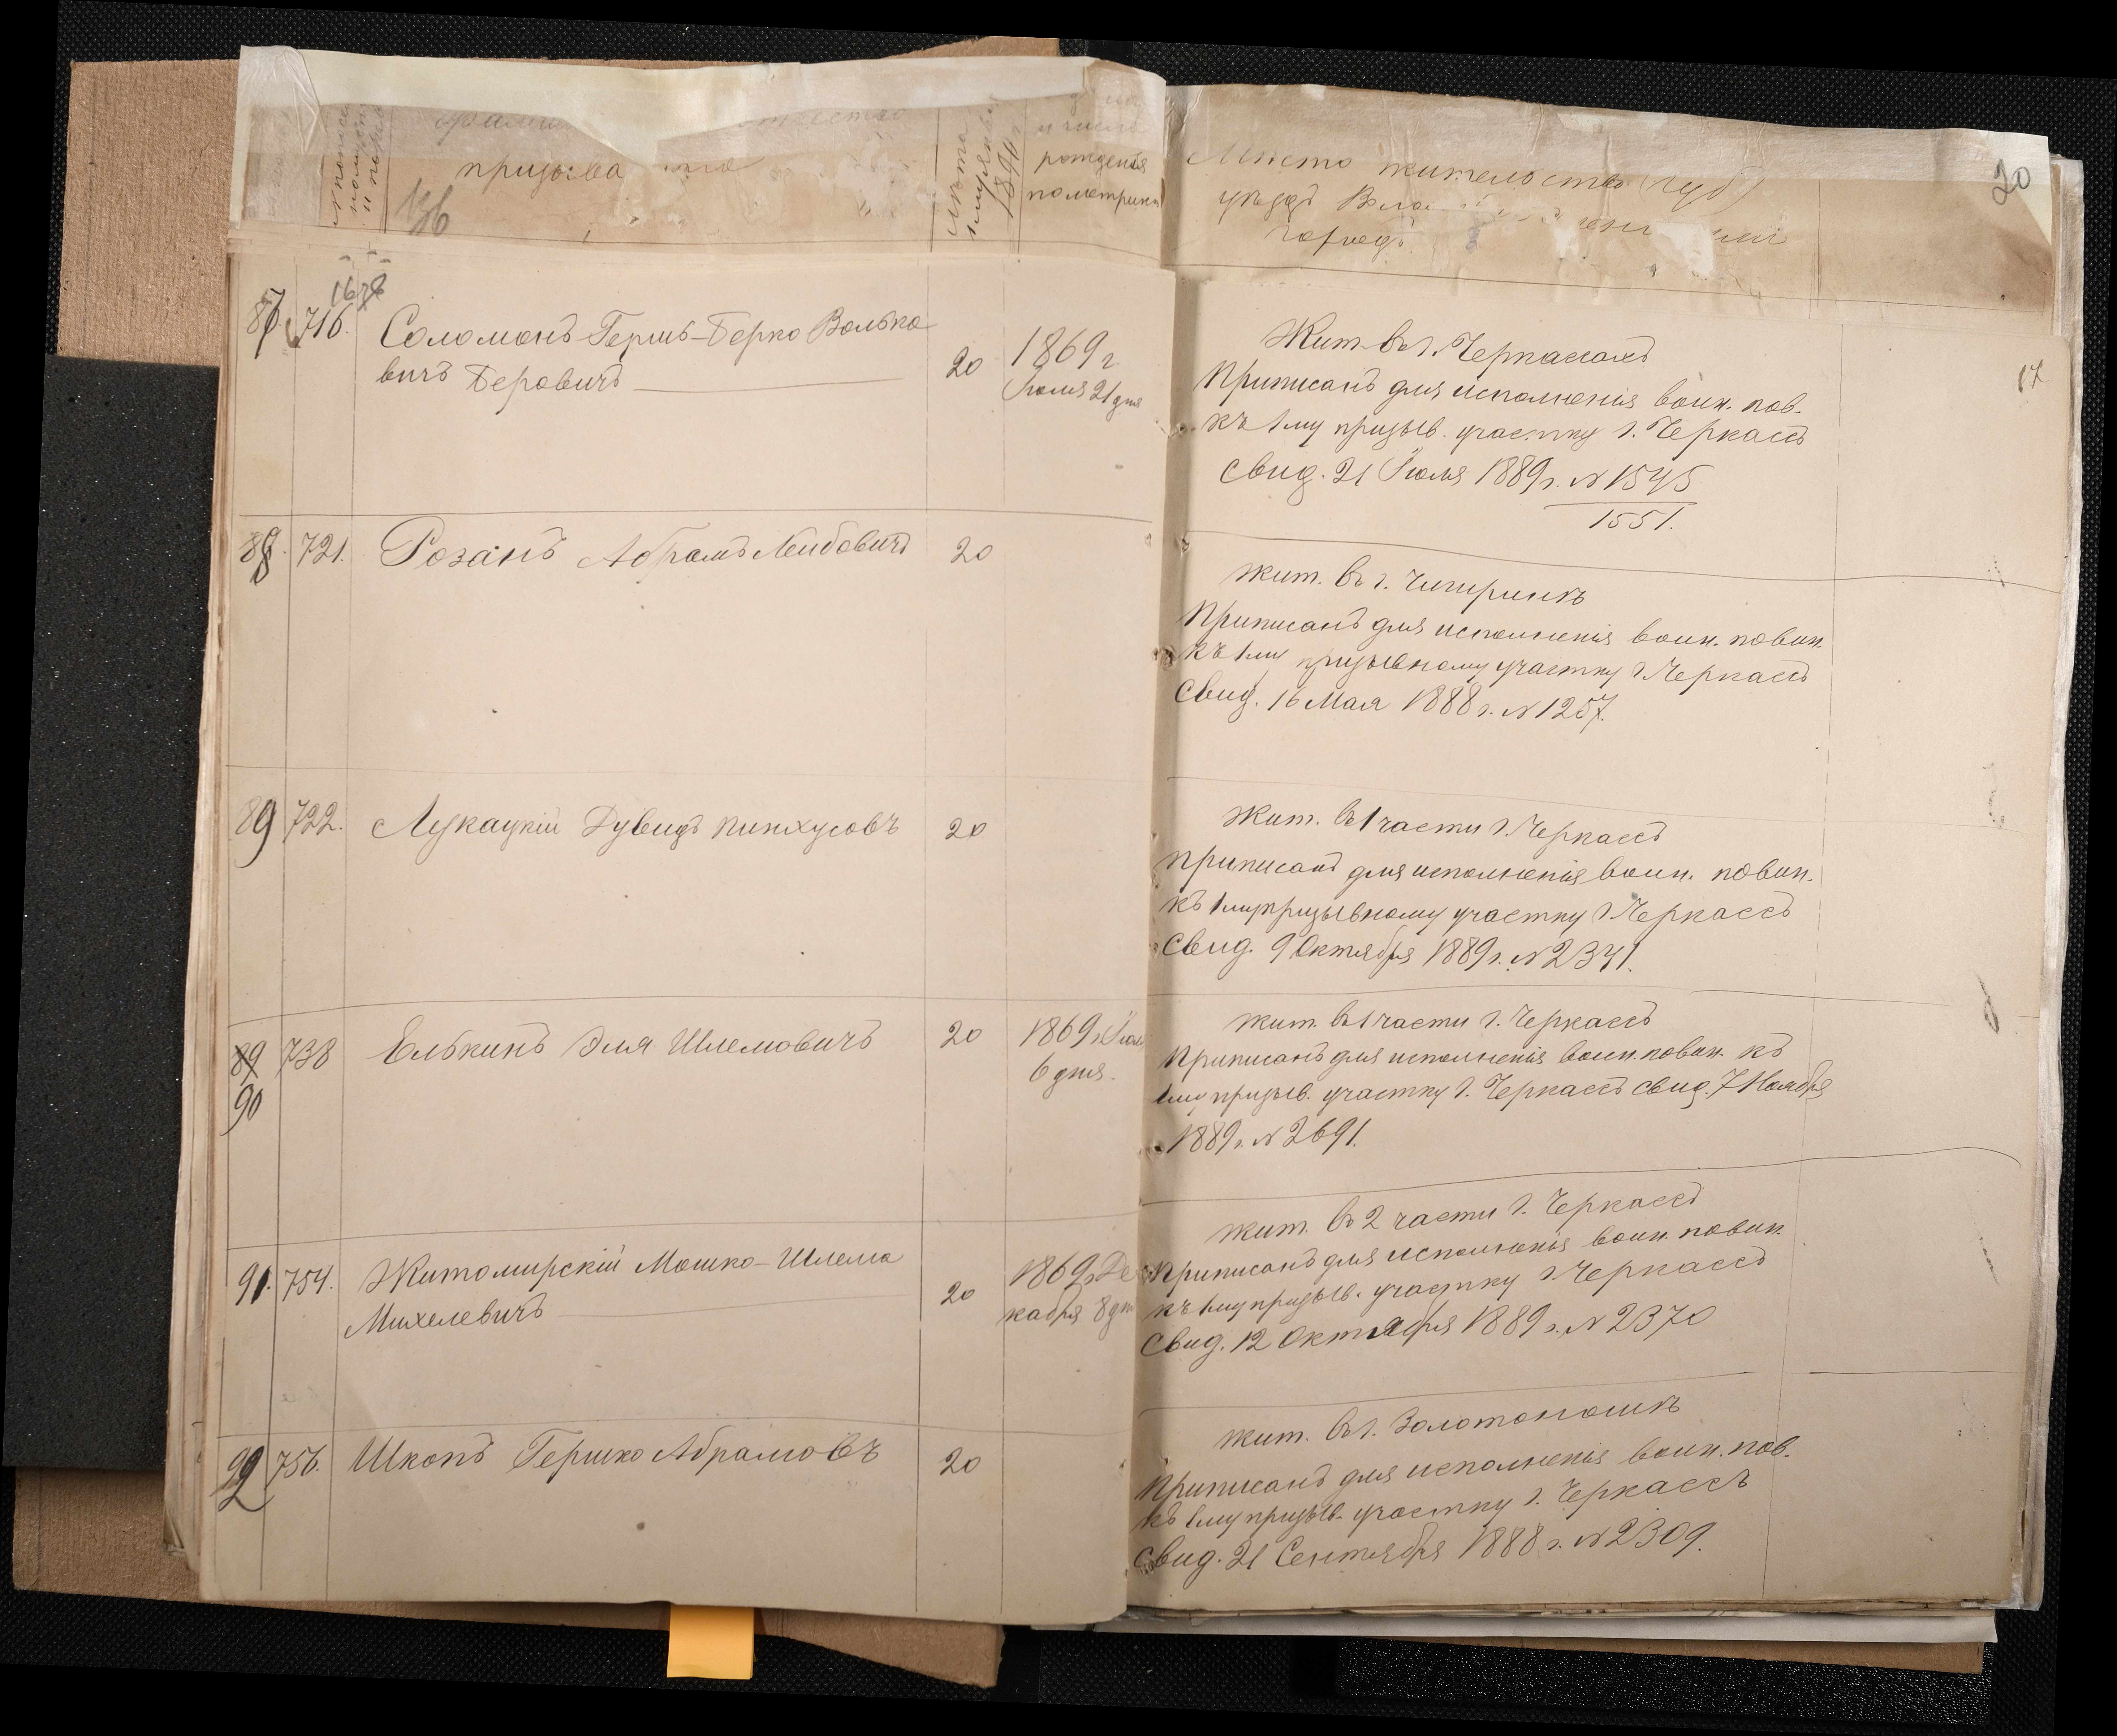 призыва
лѣта к 1 января 1890 г.
и число
рожденія
по метрикѣ
Мѣсто жительства (губ.)
уѣздъ
городъ
20
17
1678
87. 716. Соломонъ Гершъ-Берко Волько
вичъ Беровичъ
20
1869 г
Іюля 21 дня
Жит. въ г. Черкассахъ
Приписанъ для исполненія воин. пов.
къ 1му призыв. участку г. Черкассъ
Свид. 21 Іюля 1889 г. № 1545
1551.
88. 721. Розанъ Абрамъ Лейбовичъ
20
жит. въ г. Чигиринѣ
Приписанъ для исполненія воин. повин.
къ 1му призывному участку г. Черкассъ
Свид. 16 Мая 1888 г. № 1257.
89 722. Лукацкій Дувидъ Пинхусовъ
20
Жит. въ 1 части г. Черкассъ
приписанъ для исполненія воин. повин.
къ 1му призывному участку г. Черкассъ
Свид. 9 Октября 1889 г. № 2341.
89 738 Елькинъ Эля Шлемовичъ
90
20
1869 г. Іюля
6 дня.
жит. въ 1 части г. Черкассъ
Приписанъ для исполненія воин. повин. къ
1му призыв. участку г. Черкассъ свид. 7 Ноября
1889 г. № 2691.
91. 754. Житомирскій Мошко-Шлема
Михелевичъ
20
1869 г. Де
кабря 8 дня
жит. въ 2 части г. Черкассъ
Приписанъ для исполненія воин. повин.
къ 1му призыв. участку г. Черкассъ
Свид. 12 Октября 1889 г. № 2370
92 756. Шкопъ Гершко Абрамовъ
20
жит. въ г. Золотоношѣ
Приписанъ для исполненія воин. пов.
къ 1му призыв. участку г. Черкассъ
Свид. 21 Сентября 1888 г. № 2309.